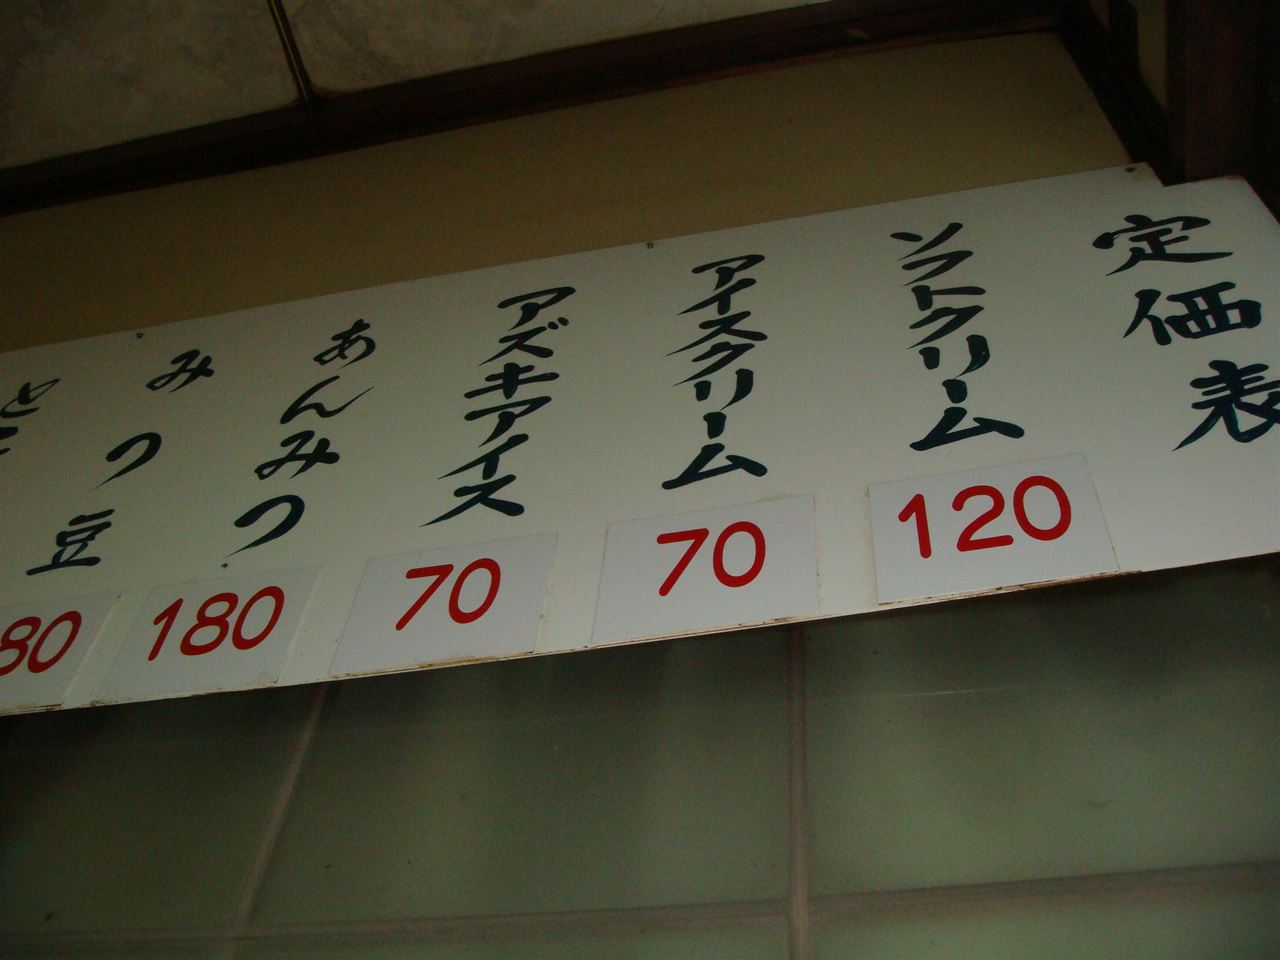 定価表
ソフトクリーム
120
アイスクリーム
70
アズキアイス
70
あんみつ
180
みつ豆
80